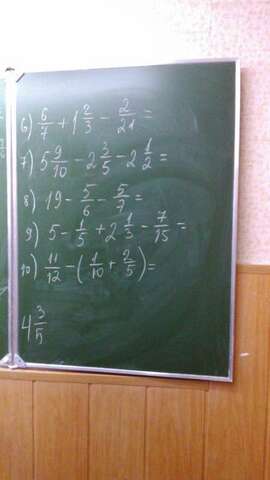 6) 6/7 + 1 2/3 - 2/21 =
7) 5 9/10 - 2 3/5 - 2 1/2 =
8) 19 - 5/6 - 5/7 =
9) 5 - 1/5 + 2 1/3 - 7/15 =
10) 11/12 - (1/10 + 2/5) =
4 3/5